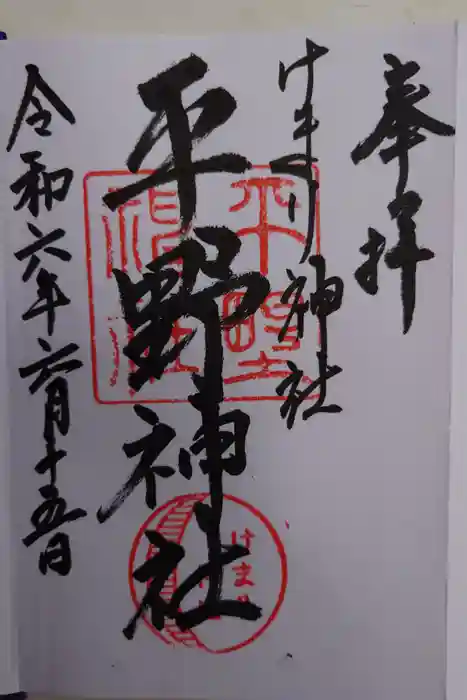 奉拝
けまり神社
平野神社
令和六年六月十五日
平野
けまり